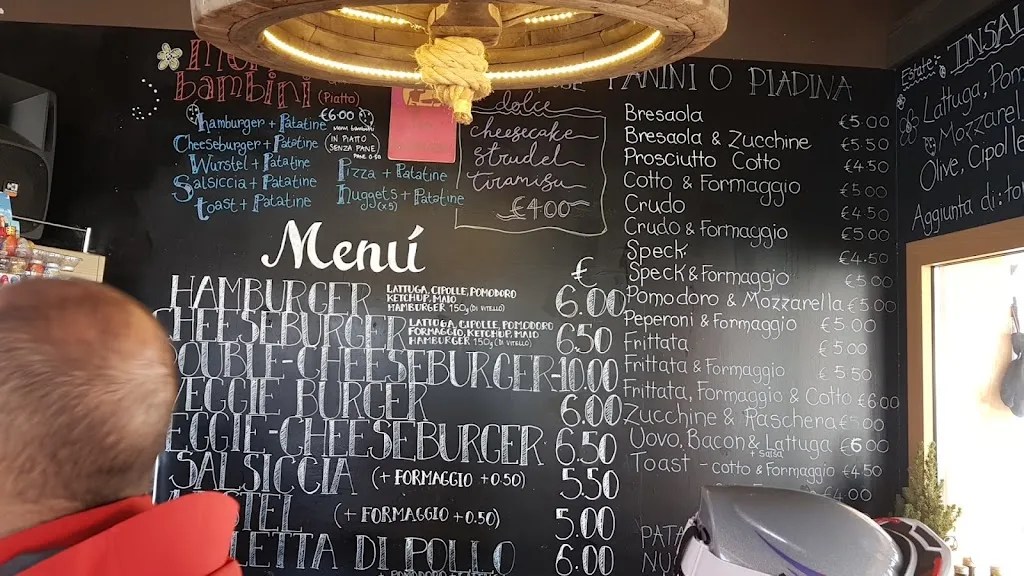 bambini (Piatto)
Hamburger + Patatine
Cheeseburger + Patatine
Würstel + Patatine
Salsiccia + Patatine
Toast + Patatine
€6.00
menu bambini
IN PIATTO
SENZA PANE
PANE 0.50
Pizza + Patatine
Nuggets + Patatine
(x5)
dolce
cheesecake
strudel
tiramisu
€4.00
Menú
€
HAMBURGER LATTUGA, CIPOLLE, POMODORO
KETCHUP, MAIO
HAMBURGER 150g (DI VITELLO)
6.00
CHEESEBURGER LATTUGA, CIPOLLE, POMODORO
FORMAGGIO, KETCHUP, MAIO
HAMBURGER 150g (DI VITELLO)
6.50
DOUBLE-CHEESEBURGER-10.00
VEGGIE BURGER 6.00
VEGGIE-CHEESEBURGER 6.50
SALSICCIA (+ FORMAGGIO +0.50) 5.50
(+ FORMAGGIO +0.50) 5.00
DI POLLO 6.00
PANINI O PIADINA
Bresaola €5.00
Bresaola & Zucchine €5.50
Prosciutto Cotto €4.50
Cotto & Formaggio €5.00
Crudo €4.50
Crudo & Formaggio €5.00
Speck €4.50
Speck & Formaggio €5.00
Pomodoro & Mozzarella €5.00
Peperoni & Formaggio €5.00
Frittata €5.00
Frittata & Formaggio €5.50
Frittata, Formaggio & Cotto €6.00
Zucchine & Raschera €5.00
Uovo, Bacon & Lattuga €6.00
+ Salsa
Toast - cotto & Formaggio €4.50
€4.00
Estate:
Lattuga,
Olive,
Aggiunta di: